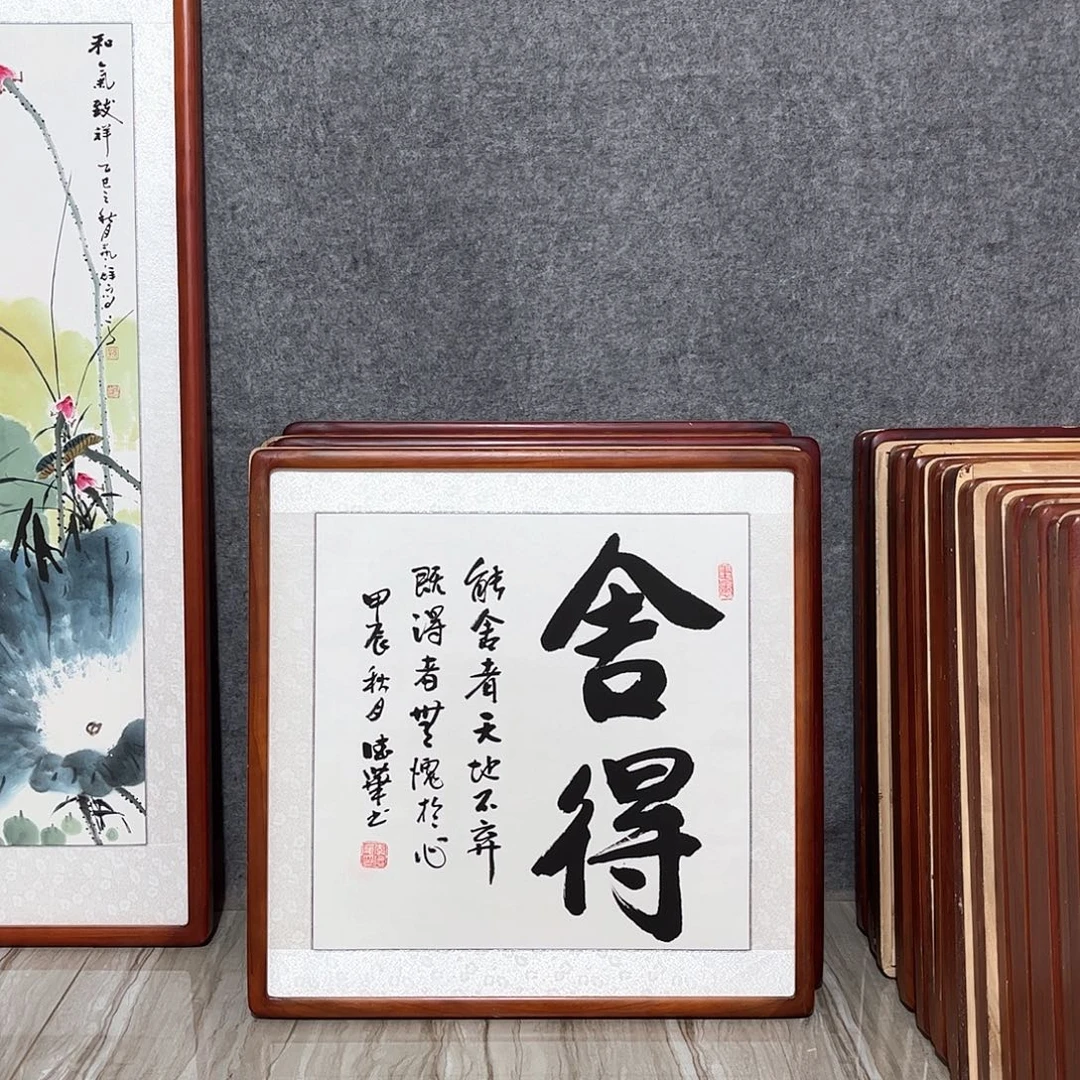 和氣致祥
乙巳之秋月
舍得
能舍者天地不弃
既得者無愧於心
甲辰秋月